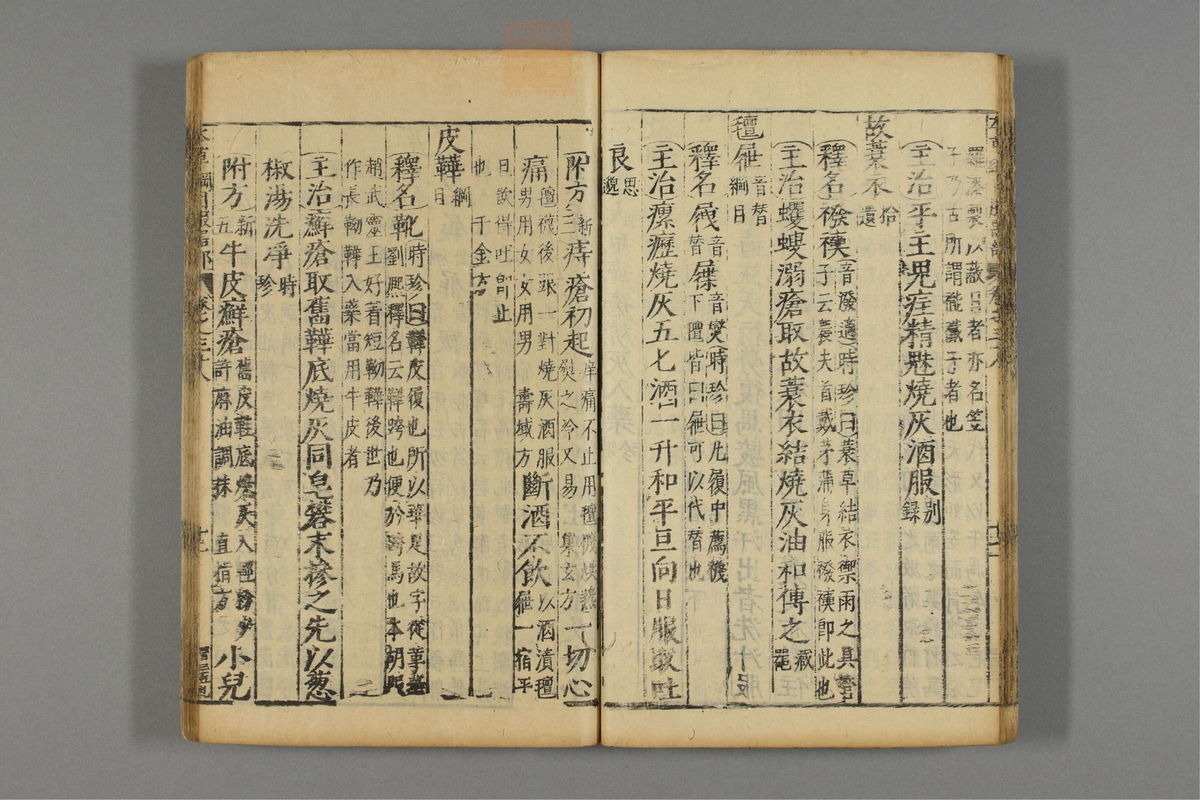 子乃古所謂
者也
主治平主鬼疰精魅燒灰酒服別錄
故蓑衣拾遺
釋名襏襫音潑適時珍曰蓑草結衣禦雨之具管
子云農夫首戴茅蒲身服襏襫即此也
主治蠼螋溺瘡取故蓑衣結燒灰油和傅之藏器
氊屜音替綱目
釋名屜音替屟音燮時珍曰凡履中薦襪
下氊皆曰屜可以代替也
主治瘰癧燒灰五匕酒一升和平旦向日服取吐
良思邈
附方新三痔瘡初起痒痛不止用氊襪烘熱
熨之冷又易集玄方一切心
痛氊襪後跟一對燒灰酒服
男用女女用男壽域方斷酒不飲以酒漬氊
屜一宿平
旦飲得吐即止
也千金方
皮鞾綱目
釋名靴時珍曰鞾皮履也所以華足故字從革華
劉熙釋名云鞾跨也便於跨馬也本胡服
趙武靈王好着短靿鞾後世乃
作長靿鞾入藥當用牛皮者
主治癬瘡取舊鞾底燒灰同皂礬末摻之先以葱
椒湯洗凈時珍
附方新五牛皮癬瘡舊皮鞋底燒灰入輕粉少
許麻油調抹直指方小兒